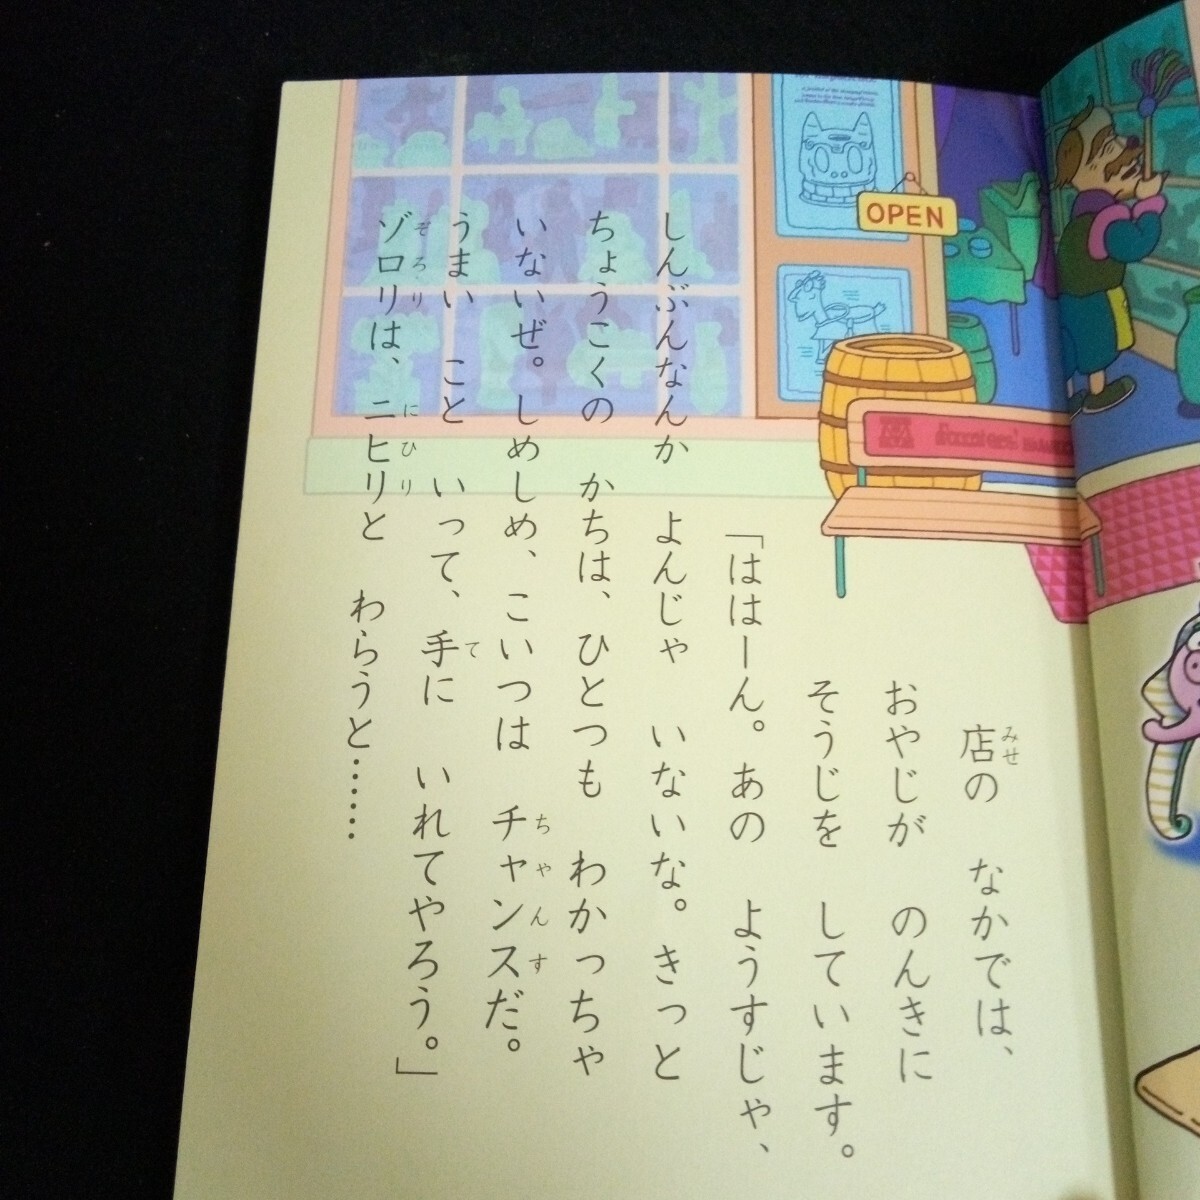 OPEN
店の なかでは、
おやじが のんきに
そうじを しています。
「ははーん。あの ようすじゃ、
しんぶんなんか よんじゃ いないな。きっと
ちょうこくの かちは、ひとつも わかっちゃ
いないぜ。しめしめ、こいつは チャンスだ。
うまい こと いって、手に いれてやろう。」
ゾロリは、ニヒリと わらうと……
みせ
ちゃんす
て
ぞろり
にひり